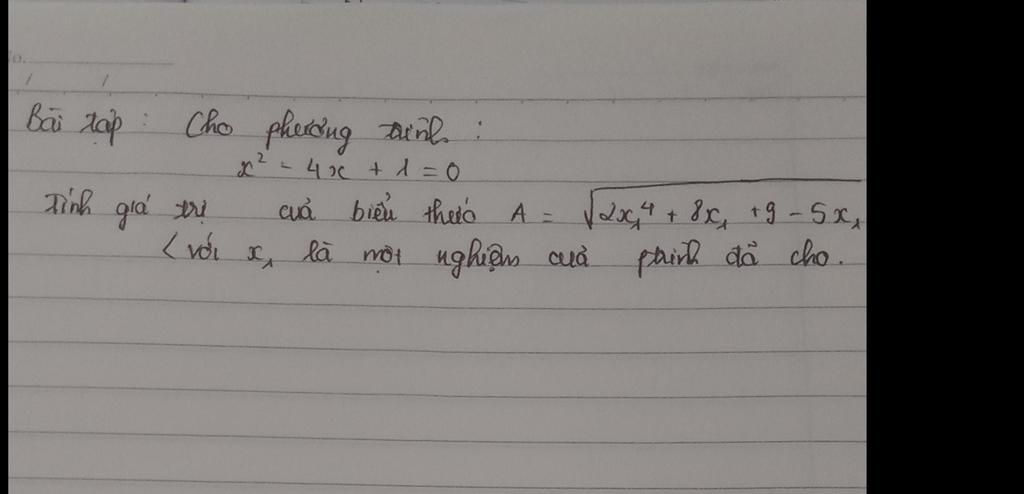 Bài tập : Cho phương trình :
x² - 4x + 1 = 0
Tính giá trị của biểu thức A = √2x₁⁴ + 8x₁ + 9 - 5x₁
(với x₁ là một nghiệm của ptrình đã cho.